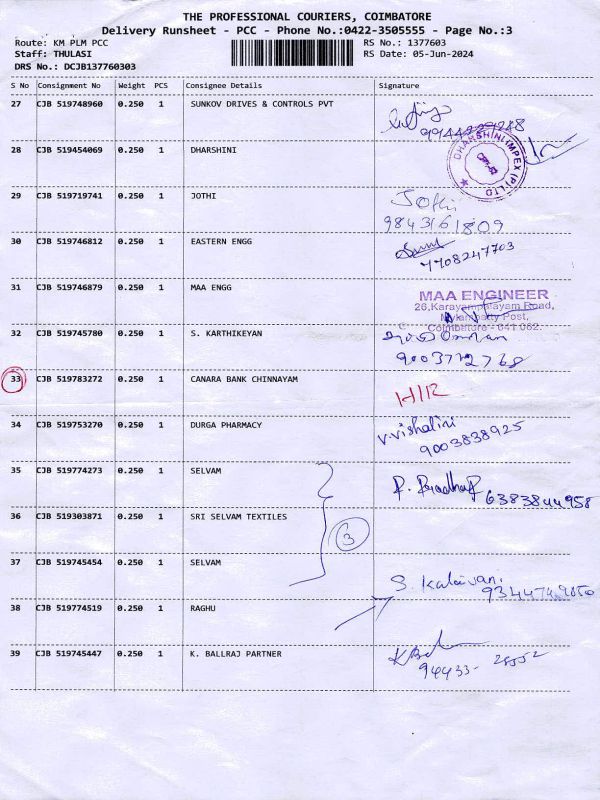 THE PROFESSIONAL COURIERS, COIMBATORE
Delivery Runsheet - PCC - Phone No.:0422-3505555 - Page No.:3
Route: KM PLM PCC RS No.: 1377603
Staff: THULASI RS Date: 05-Jun-2024
DRS No.: DCJB137760303
S No Consignment No Weight PCS Consignee Details Signature
27 CJB 519748960 0.250 1 SUNKOV DRIVES & CONTROLS PVT
28 CJB 519454069 0.250 1 DHARSHINI
DHARSHINI IMPEX (P) LTD
29 CJB 519719741 0.250 1 JOTHI Jothi
9843161809
30 CJB 519746812 0.250 1 EASTERN ENGG
7708247703
31 CJB 519746879 0.250 1 MAA ENGG MAA ENGINEER
26,Karayampalayam Road,
Mylampatty Post,
Coimbatore - 641 062.
32 CJB 519745780 0.250 1 S. KARTHIKEYAN
9003772768
33 CJB 519783272 0.250 1 CANARA BANK CHINNAYAM H/R
34 CJB 519753270 0.250 1 DURGA PHARMACY V.Vishalini
9003838925
35 CJB 519774273 0.250 1 SELVAM
6383844958
36 CJB 519303871 0.250 1 SRI SELVAM TEXTILES 3
37 CJB 519745454 0.250 1 SELVAM S. Kalaivani
38 CJB 519774519 0.250 1 RAGHU
39 CJB 519745447 0.250 1 K. BALLRAJ PARTNER
94433-28552